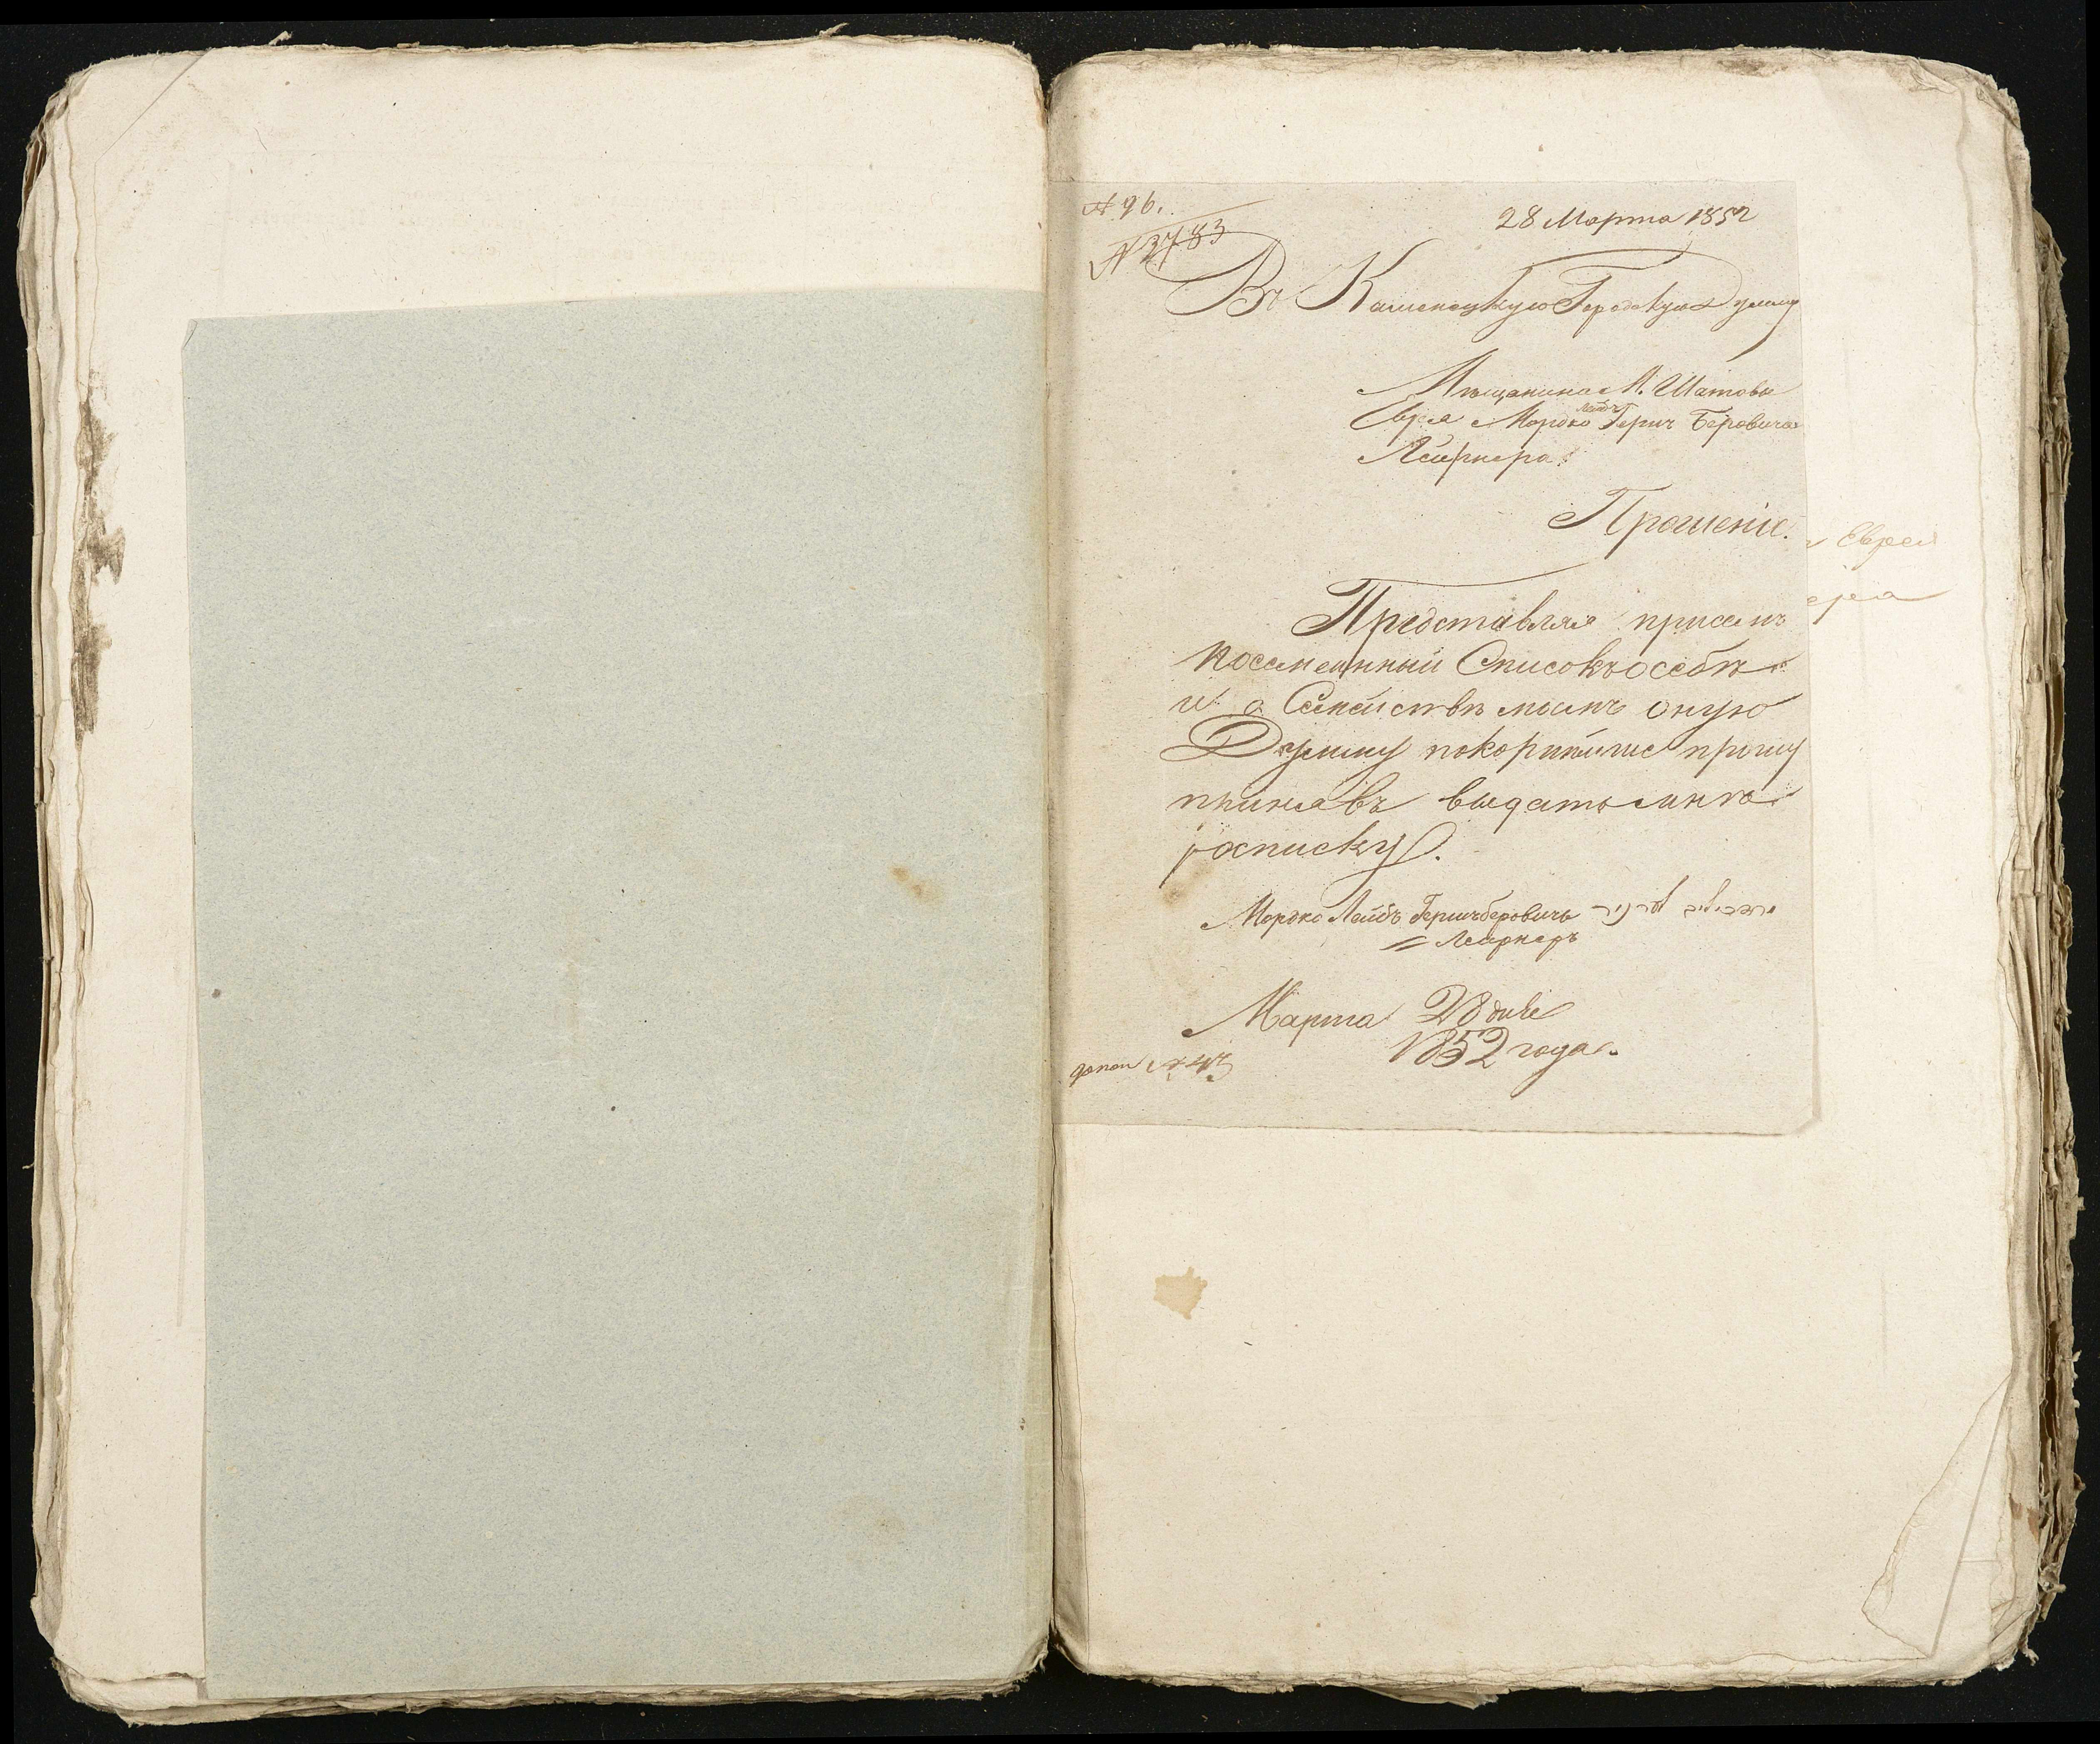 № 96.
№ 3783
28 Марта 1852
Въ Каменецкую Городскую Думу
Мѣщанина М. Шатовы
Еврея Мордко Лейбъ Герш Беровича
Лейрнера
Прошеніе.
Представляя присемъ
посемейный Списокъ о себѣ
и о Семействѣ моемъ оную
Думу покорнѣйше прошу
принявъ выдать мнѣ
росписку.
Мордко Лейбъ Гершъберовичъ מרדכי ליב לערנער
= Леарнеръ
Марта 28 дня
1852 года.
Еврея
ера